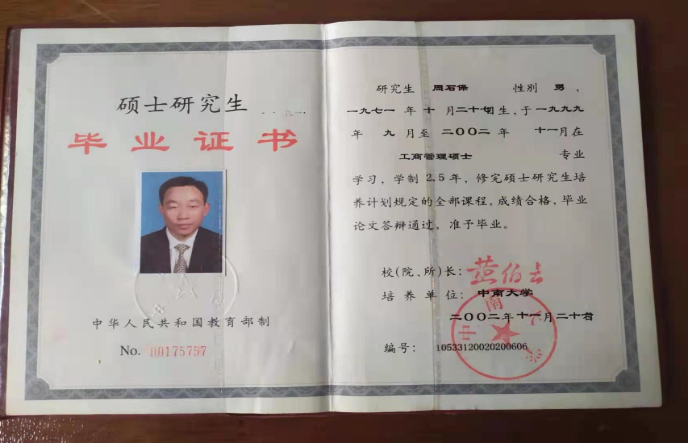 硕士研究生
毕业证书
中华人民共和国教育部制
No. 00175757
研究生 周石保 性别 男，
一九七一 年 十 月 二十 日生，于一九九九
年 九 月至 二〇〇二 年 十一月在
工商管理硕士 专业
学习，学制 2.5 年，修完硕士研究生培
养计划规定的全部课程，成绩合格，毕业
论文答辩通过，准予毕业。
校(院、所)长：
培养单位：中南大学
二〇〇二 年 十一 月 二十 日
编号：10533120020200606